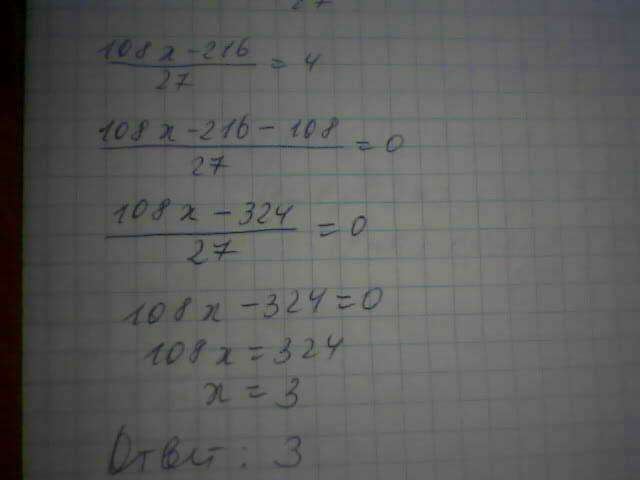 27
108x - 216 / 27 = 4
108x - 216 - 108 / 27 = 0
108x - 324 / 27 = 0
108x - 324 = 0
108x = 324
x = 3
Ответ: 3